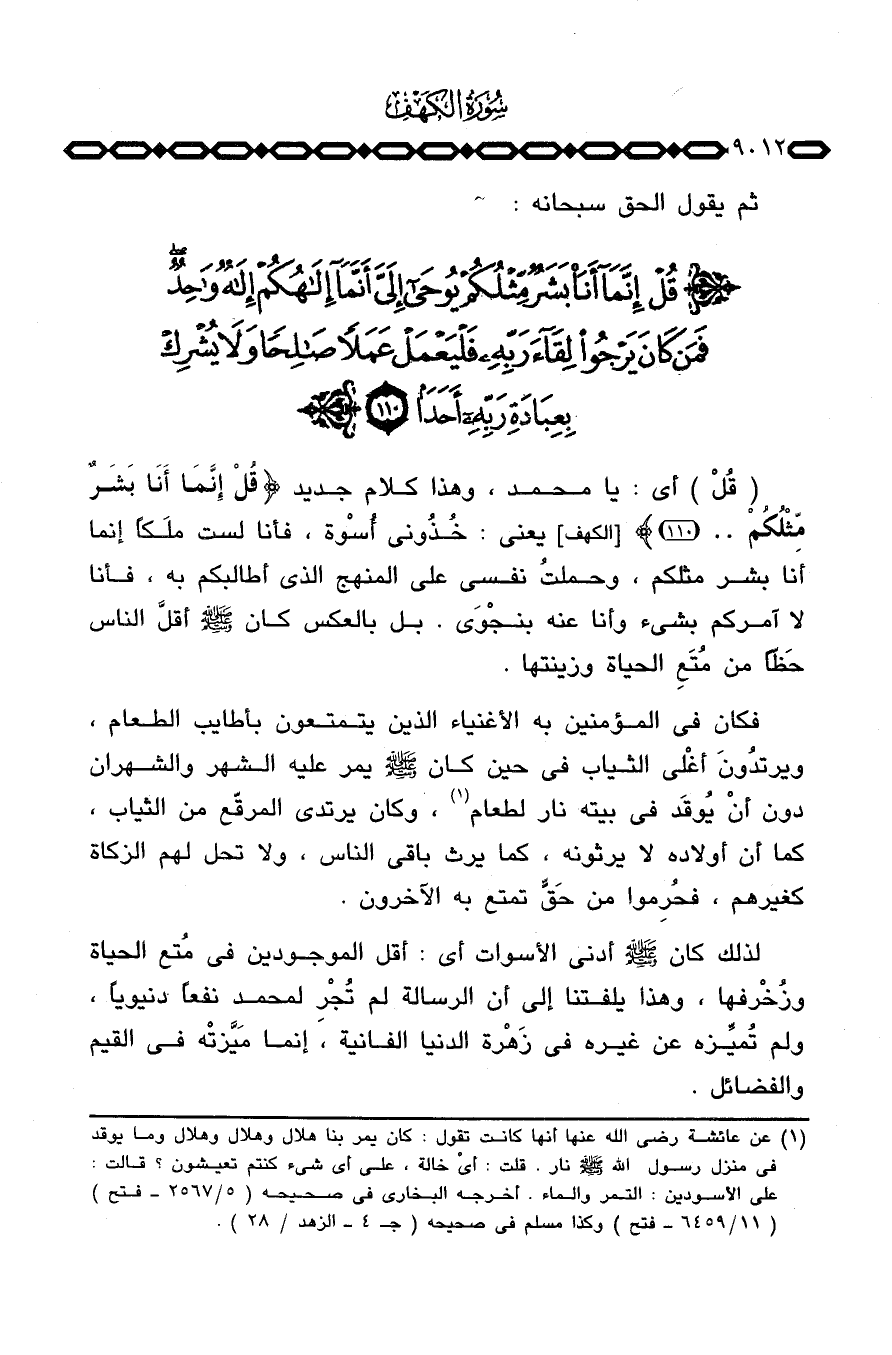 سُورَةُ الكَهْف
٩٠١٢
ثم يقول الحق سبحانه :
قُلْ إِنَّمَآ أَنَا۠ بَشَرٌ مِّثْلُكُمْ يُوحَىٰٓ إِلَىَّ أَنَّمَآ إِلَٰهُكُمْ إِلَٰهٌ وَٰحِدٌ ۖ
فَمَن كَانَ يَرْجُوا۟ لِقَآءَ رَبِّهِۦ فَلْيَعْمَلْ عَمَلًا صَٰلِحًا وَلَا يُشْرِكْ
بِعِبَادَةِ رَبِّهِۦٓ أَحَدَۢا ﴿١١٠﴾
( قُلْ ) أى : يا محمد ، وهذا كلام جديد ﴿قُلْ إِنَّمَا أَنَا بَشَرٌ
مِّثْلُكُمْ .. (١١٠)﴾ [الكهف] يعنى : خُذُونى أُسْوة ، فأنا لست ملَكاً إنما
أنا بشر مثلكم ، وحملتُ نفسى على المنهج الذى أطالبكم به ، فأنا
لا آمركم بشىء وأنا عنه بنجْوَى . بل بالعكس كان ﷺ أقلَّ الناس
حَظّاً من مُتَعِ الحياة وزينتها .
فكان فى المؤمنين به الأغنياء الذين يتمتعون بأطايب الطعام ،
ويرتدُونَ أغْلى الثياب فى حين كان ﷺ يمر عليه الشهر والشهران
دون أنْ يُوقَد فى بيته نار لطعام(١) ، وكان يرتدى المرقّع من الثياب ،
كما أن أولاده لا يرثونه ، كما يرث باقى الناس ، ولا تحل لهم الزكاة
كغيرهم ، فحُرِموا من حَقٍّ تمتع به الآخرون .
لذلك كان ﷺ أدنى الأسوات أى : أقل الموجودين فى مُتع الحياة
وزُخْرفها ، وهذا يلفتنا إلى أن الرسالة لم تُجْرِ لمحمد نفعاً دنيوياً ،
ولم تُميِّزه عن غيره فى زَهْرة الدنيا الفانية ، إنما مَيَّزتْه فى القيم
والفضائل .
(١) عن عائشة رضى الله عنها أنها كانت تقول : كان يمر بنا هلال وهلال وهلال وما يوقد
فى منزل رسول الله ﷺ نار . قلت : أىْ خالة ، على أى شىء كنتم تعيشون ؟ قالت :
على الأسودين : التمر والماء . أخرجه البخارى فى صحيحه ( ٢٥٦٧/٥ ـ فتح )
( ٦٤٥٩/١١ ـ فتح ) وكذا مسلم فى صحيحه ( جـ ٤ ـ الزهد / ٢٨ ) .